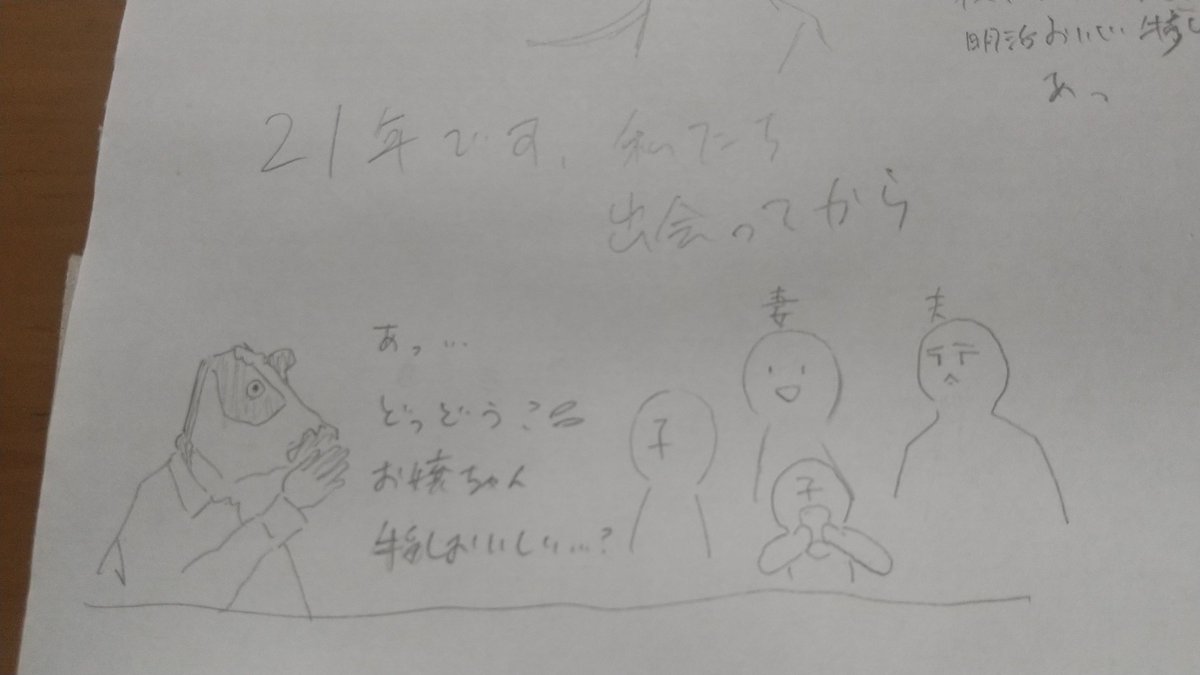 明治おいしい牛乳
あっ
21年です、私たち
出会ってから
妻
夫
あっ…
どっどう?
お嬢ちゃん
牛乳おいしい…?
子
子